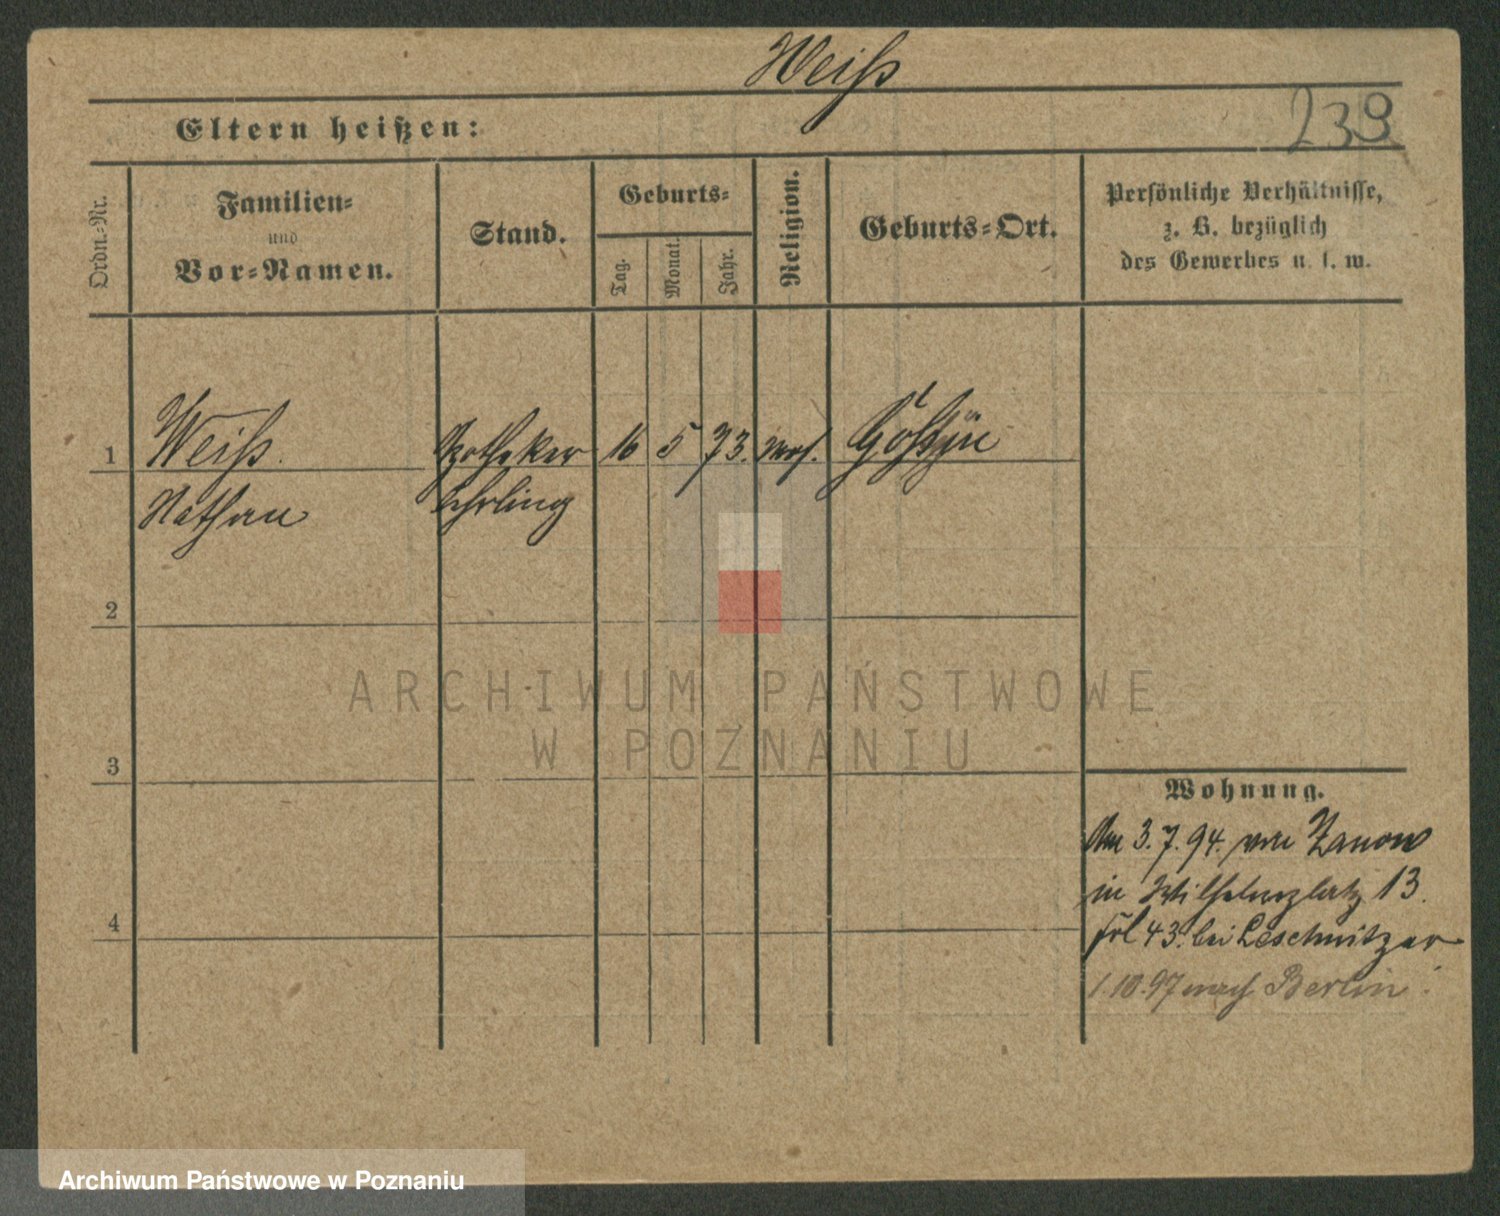 Weiß
239
Eltern heißen:
Ordn.-Nr.
Familien-
und
Vor-Namen.
Stand.
Geburts-
Tag.
Monat.
Jahr.
Religion.
Geburts-Ort.
Persönliche Verhältnisse,
z. B. bezüglich
des Gewerbes u. s. w.
1 Weiß. Apotheker 16 5 73. mos.
Nathan Lehrling
2
3
4
ARCHIWUM PAŃSTWOWE
W POZNANIU
Wohnung.
Am 3.7.94. von Zanow
in Wilhelmsplatz 13.
fol 43. bei Leschnitzer
1.10.97 nach Berlin.
Archiwum Państwowe w Poznaniu